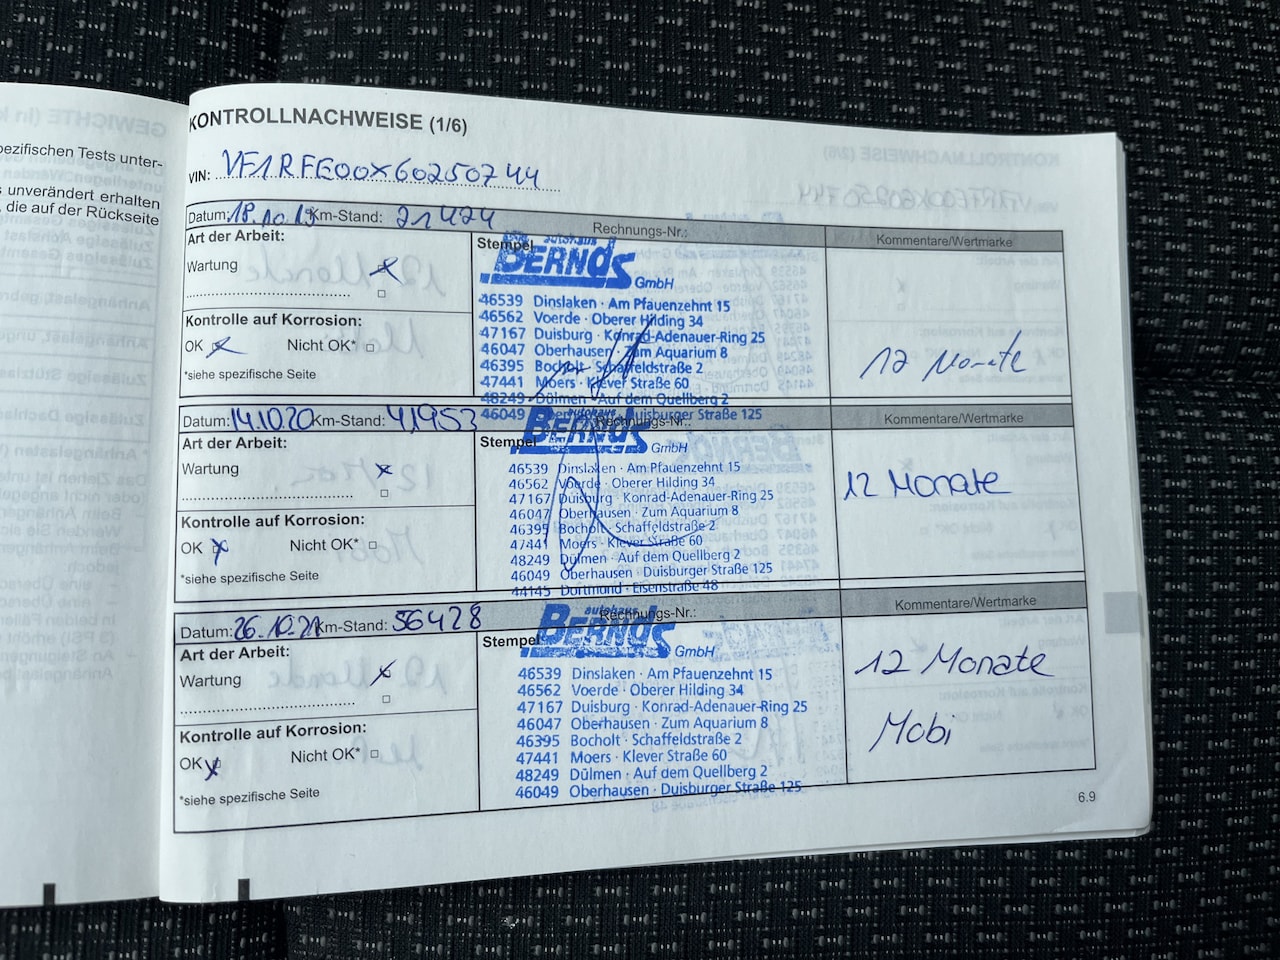 pezifischen Tests unter-
s unverändert erhalten
, die auf der Rückseite
KONTROLLNACHWEISE (1/6)
VIN: VF1RFE00X60250744
Datum: 18.10.19 Km-Stand: 21424 Rechnungs-Nr.: Kommentare/Wertmarke
Art der Arbeit:
Wartung
Kontrolle auf Korrosion:
OK Nicht OK*
*siehe spezifische Seite
Stempel
autohaus
BERNDS
GmbH
46539 Dinslaken · Am Pfauenzehnt 15
46562 Voerde · Oberer Hilding 34
47167 Duisburg · Konrad-Adenauer-Ring 25
46047 Oberhausen · Zum Aquarium 8
46395 Bocholt · Schaffeldstraße 2
47441 Moers · Klever Straße 60
48249 Dülmen · Auf dem Quellberg 2
46049 Duisburger Straße 125
12 Monate
Datum: 14.10.20 Km-Stand: 41953 Rechnungs-Nr.: Kommentare/Wertmarke
Art der Arbeit:
Wartung
Kontrolle auf Korrosion:
OK Nicht OK*
*siehe spezifische Seite
Stempel
autohaus
BERNDS
GmbH
46539 Dinslaken · Am Pfauenzehnt 15
46562 Voerde · Oberer Hilding 34
47167 Duisburg · Konrad-Adenauer-Ring 25
46047 Oberhausen · Zum Aquarium 8
46395 Bocholt · Schaffeldstraße 2
47441 Moers · Klever Straße 60
48249 Dülmen · Auf dem Quellberg 2
46049 Oberhausen · Duisburger Straße 125
44145 Dortmund · Eisenstraße 48
12 Monate
Datum: 26.10.21 Km-Stand: 56428 Rechnungs-Nr.: Kommentare/Wertmarke
Art der Arbeit:
Wartung
Kontrolle auf Korrosion:
OK Nicht OK*
*siehe spezifische Seite
Stempel
autohaus
BERNDS
GmbH
46539 Dinslaken · Am Pfauenzehnt 15
46562 Voerde · Oberer Hilding 34
47167 Duisburg · Konrad-Adenauer-Ring 25
46047 Oberhausen · Zum Aquarium 8
46395 Bocholt · Schaffeldstraße 2
47441 Moers · Klever Straße 60
48249 Dülmen · Auf dem Quellberg 2
46049 Oberhausen · Duisburger Straße 125
12 Monate
Mobi
6.9